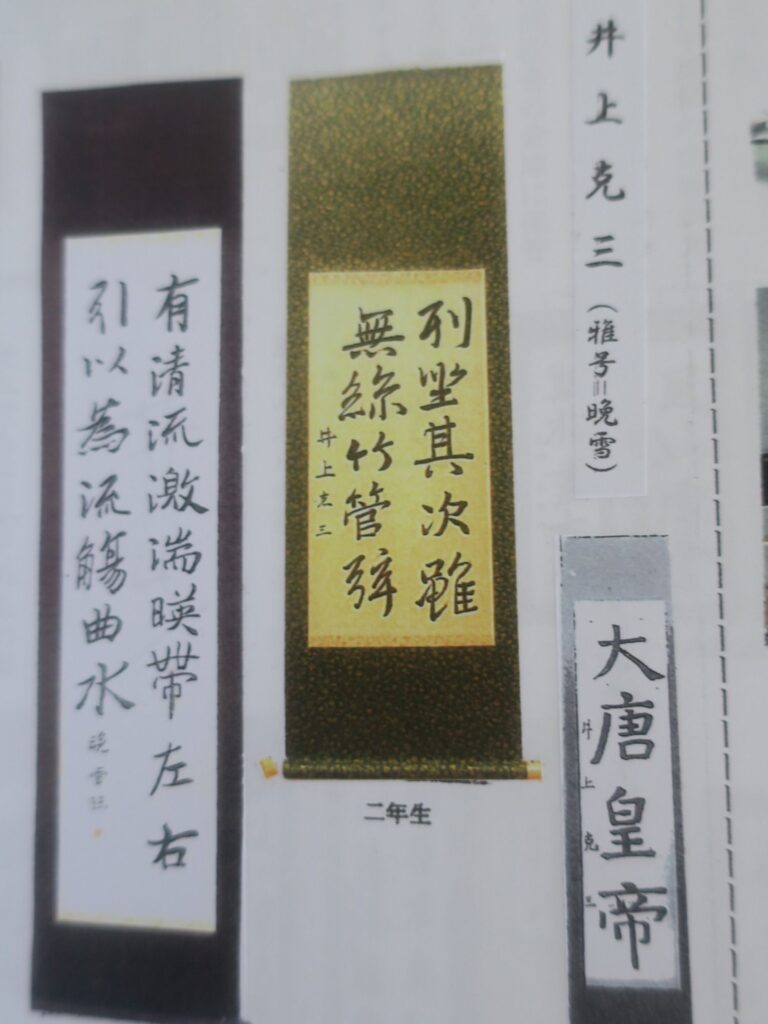 井上克三(雅号=晩雪)
大唐皇帝
井上克三
列坐其次雖
無絲竹管弦
井上克三
二年生
有清流激湍暎帶左右
引以為流觴曲水
晩雪